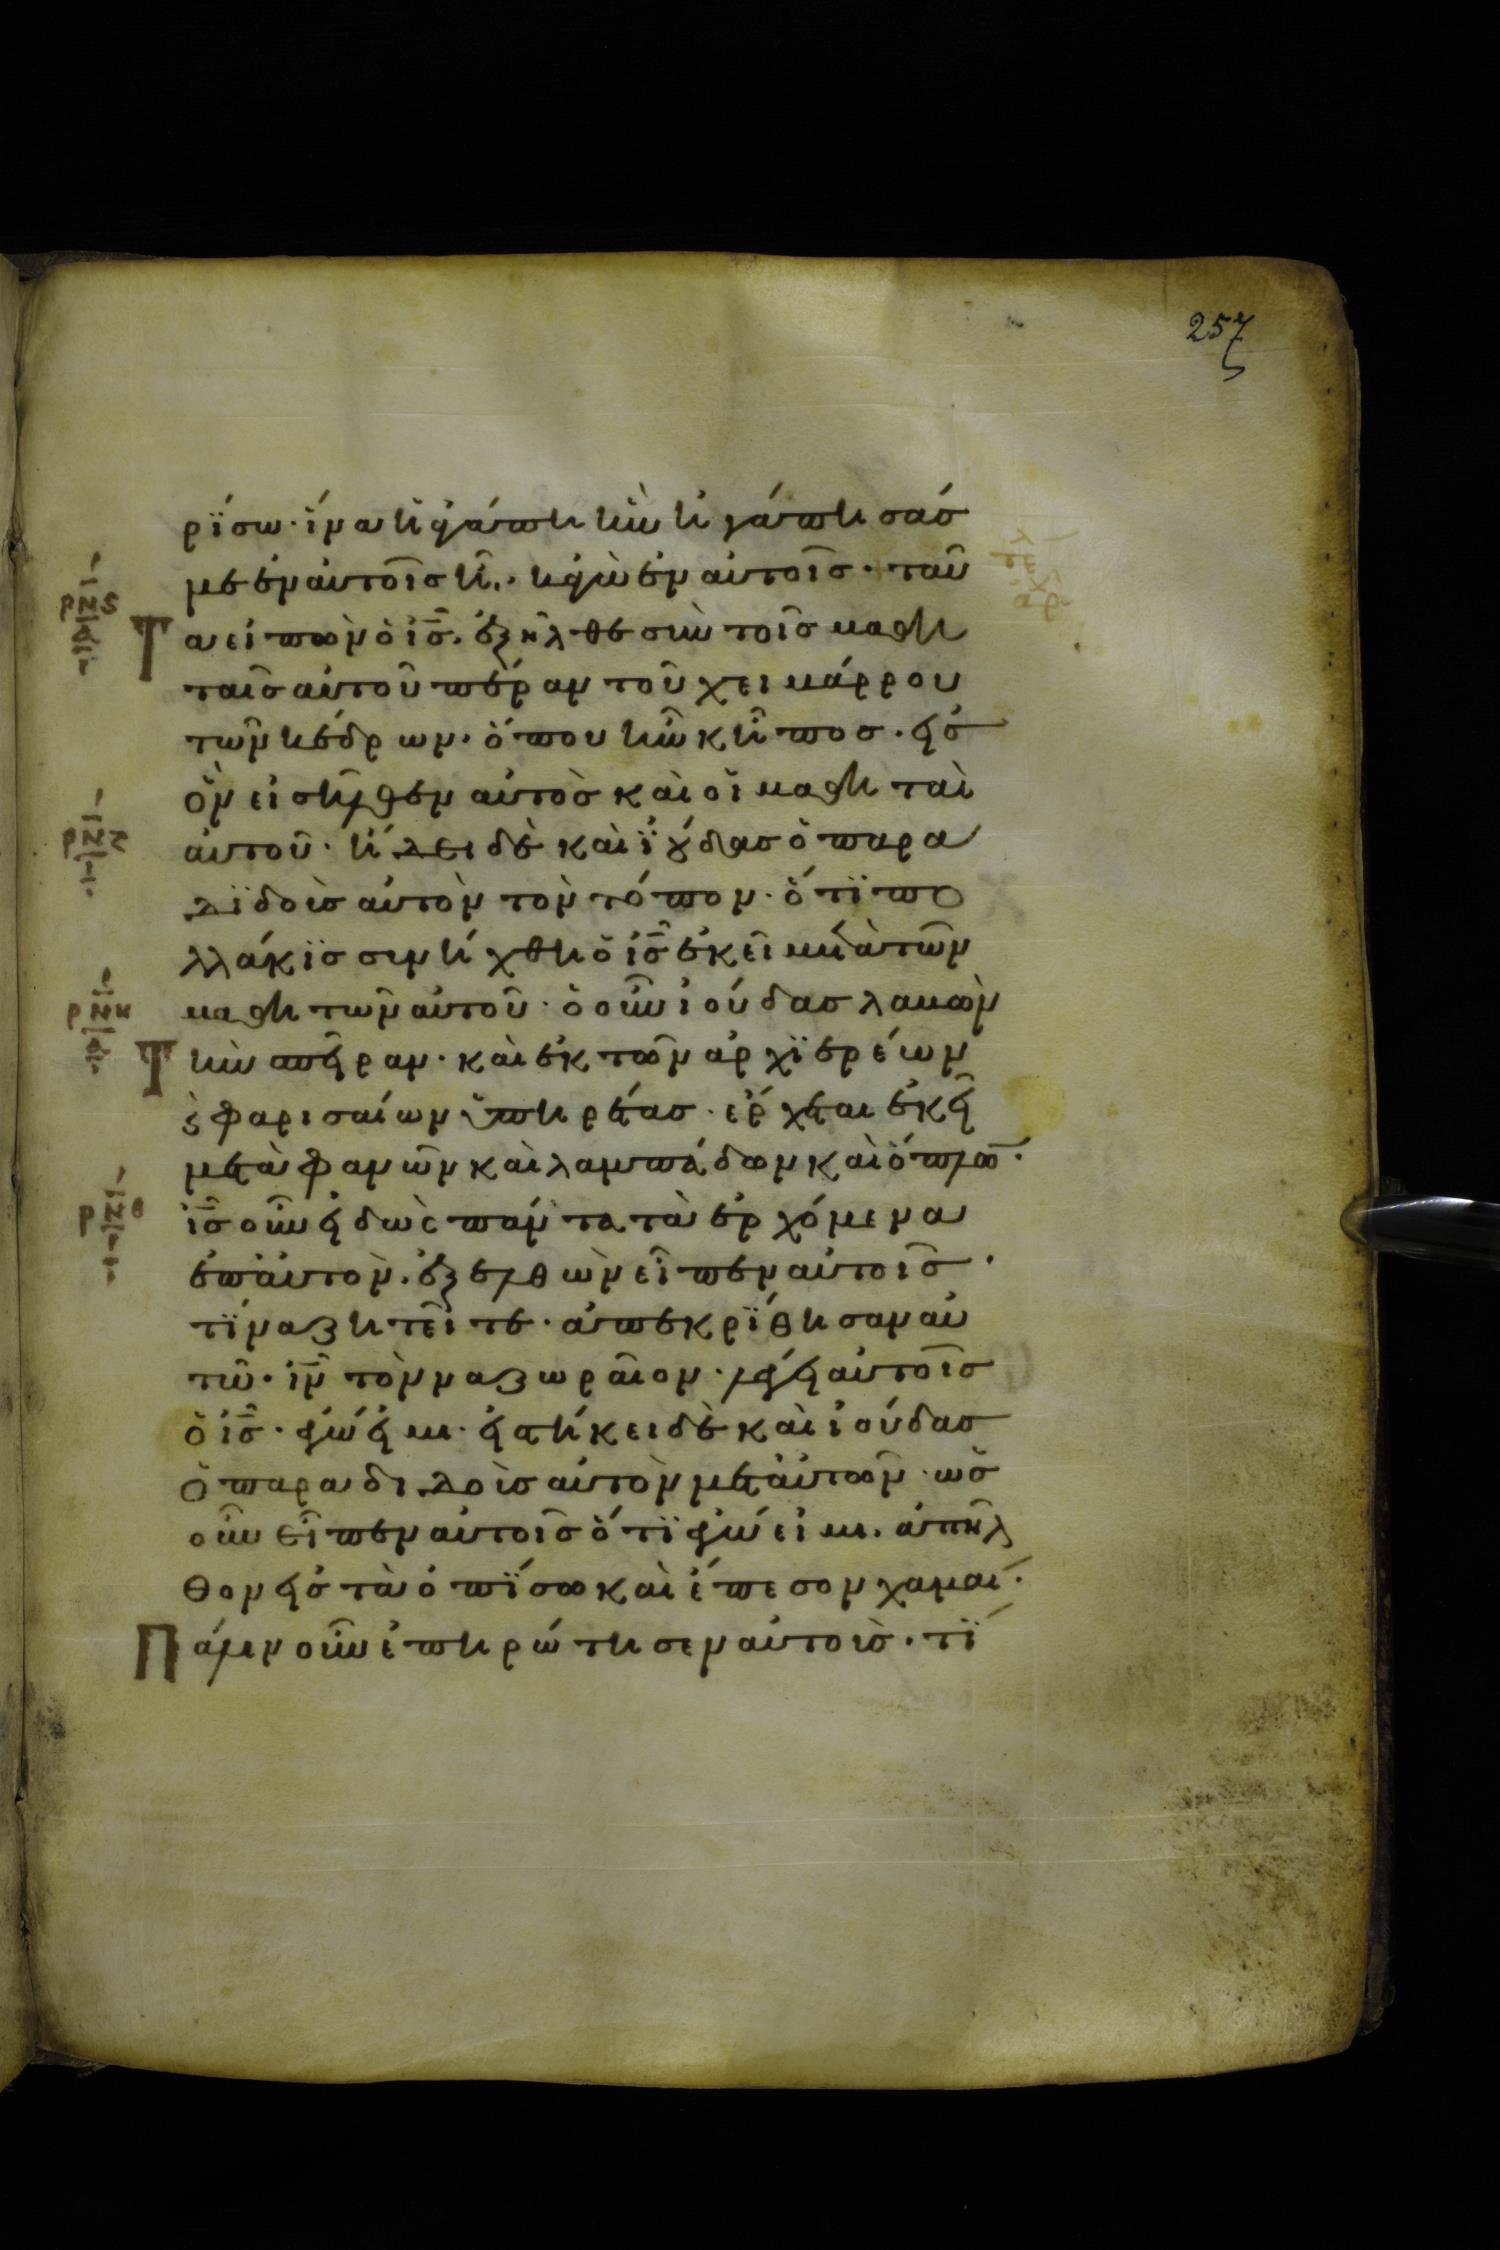 257
ρΐσω· ἵνα ἡ ἀγάπη ἣν ἠγάπησάσ
με ἐν αὐτοῖσ ἦ· κἀγὼ ἐν αὐτοῖσ· ταῦ
ρνς
Τα εἰπὼν ὁ ις̅. ἐξῆλθε σὺν τοῖσ μαθη
ταῖσ αὐτοῦ πέραν τοῦ χειμάρρου
των κέδρων· ὅπου ἦν κῆποσ· εἰσ
ὃν εἰσῆλθεν αὐτὸσ καὶ οἱ μαθηταὶ
ρνζ
αὐτοῦ· ἤδει δὲ καὶ ϊούδασ ὁ παρα
διδοὺσ αὐτὸν τὸν τόπον· ὅτϊ πο
λλάκϊσ συνήχθη ὁ ις̅ ἐκεῖ μετὰ τῶν
ρνη
μαθητῶν αὐτοῦ· ὁ οὖν ἰούδασ λαβὼν
Τὴν σπεῖραν· καὶ ἐκ τῶν ἀρχϊερέων
ϛ φαρισαίων ὑπηρέτασ· ἔρχεται ἐκεῖ
μετὰ φανῶν καὶ λαμπάδων καὶ ὅπλω̅·
ρνθ
ις̅ οὖν εἰδὼς πάντα τὰ ἐρχόμενα
ἐπ' αὐτὸν. ἐξελθὼν εἶπεν αὐτοῖσ·
τΐνα ζητεῖτε· ἀπεκρΐθησαν αὐ
τῶ· ιν̅ τὸν ναζωραῖον· λέγει αὐτοῖσ
ὁ ις̅· ἐγώ εἰμι· εἱστήκει δὲ καὶ ἰούδασ
ὁ παραδιδοὺσ αὐτὸν μετ' αὐτῶν· ὡσ
οὖν εἶπεν αὐτοῖσ ὅτϊ ἐγώ εἰμι. ἀπῆλ
θον εἰσ τὰ ὀπΐσω καὶ ἔπεσον χαμαί·
Πάλιν οὖν ἐπηρώτησεν αὐτοὺσ· τΐ